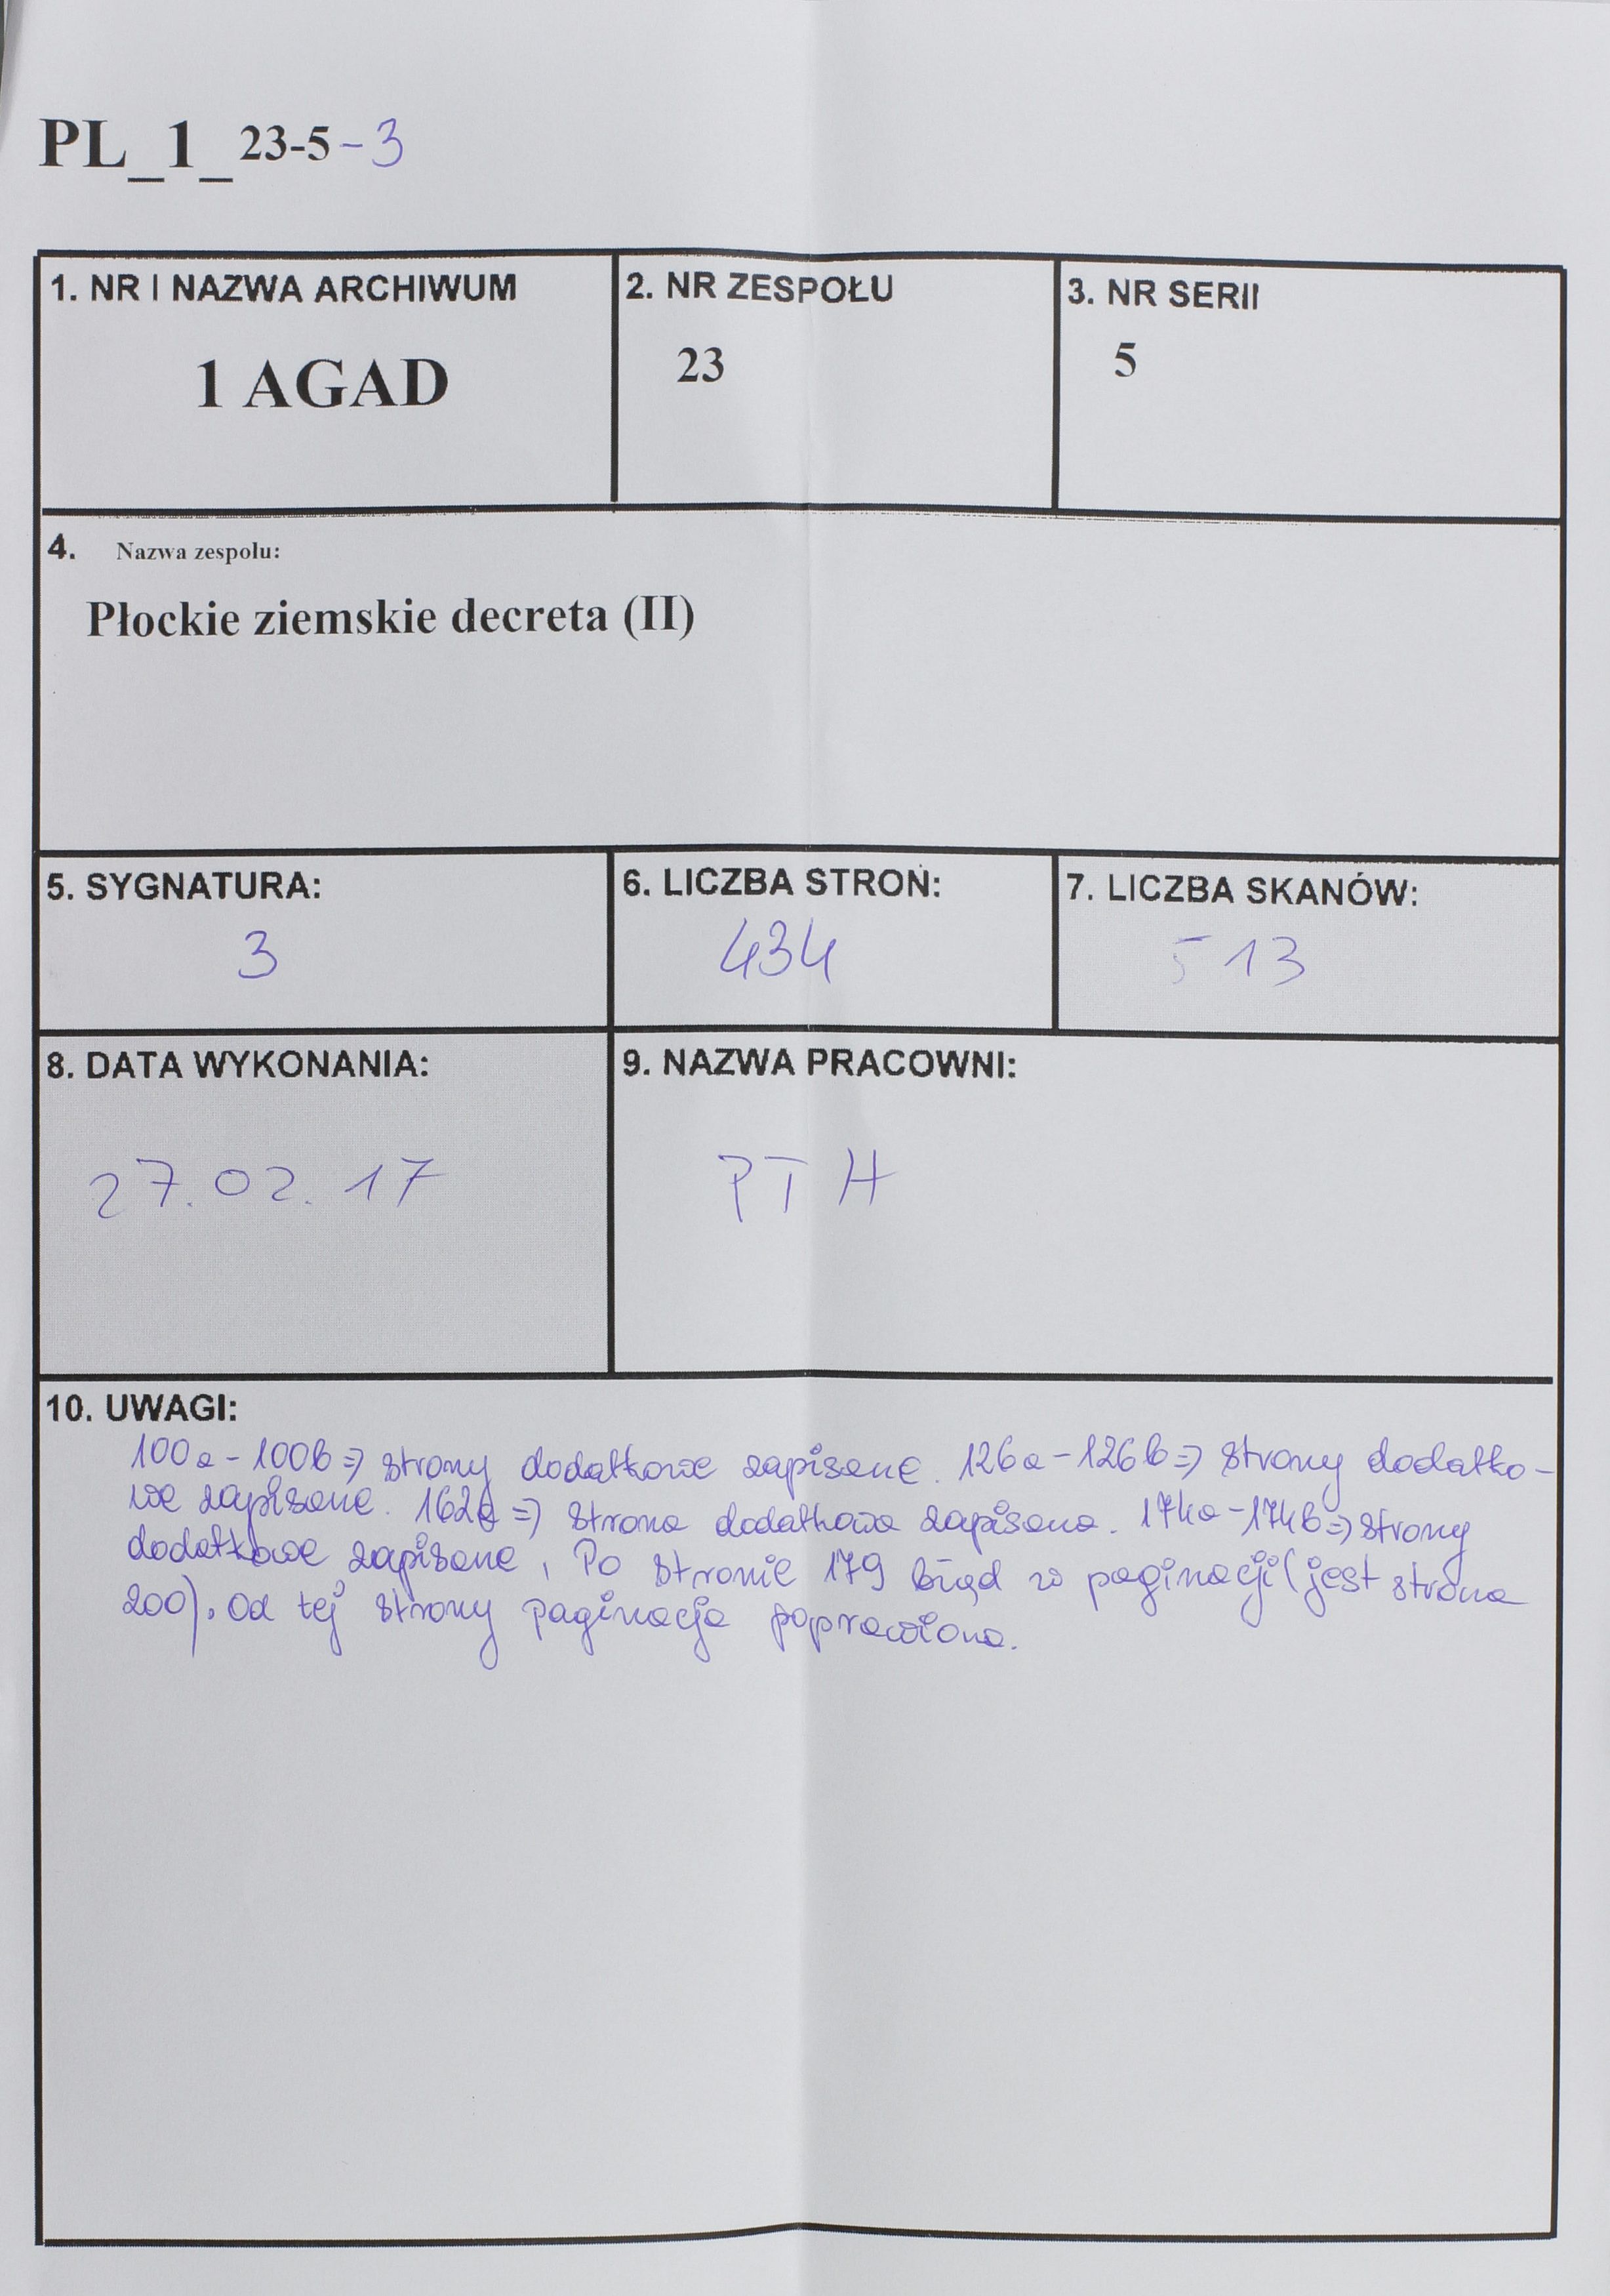 PL_1_ 23-5-3
1. NR I NAZWA ARCHIWUM
1 AGAD
2. NR ZESPOŁU
23
3. NR SERII
5
4. Nazwa zespołu:
Płockie ziemskie decreta (II)
5. SYGNATURA:
3
6. LICZBA STRON:
434
7. LICZBA SKANÓW:
513
8. DATA WYKONANIA:
27.02.17
9. NAZWA PRACOWNI:
PTH
10. UWAGI:
100a-100b => strony dodatkowe zapisane. 126a-126b => strony dodatko-
we zapisane. 162a => strona dodatkowa zapisana. 174a-174b => strony
dodatkowe zapisane, Po stronie 179 błąd w paginacji (jest strona
200). Od tej strony paginacja poprawiona.